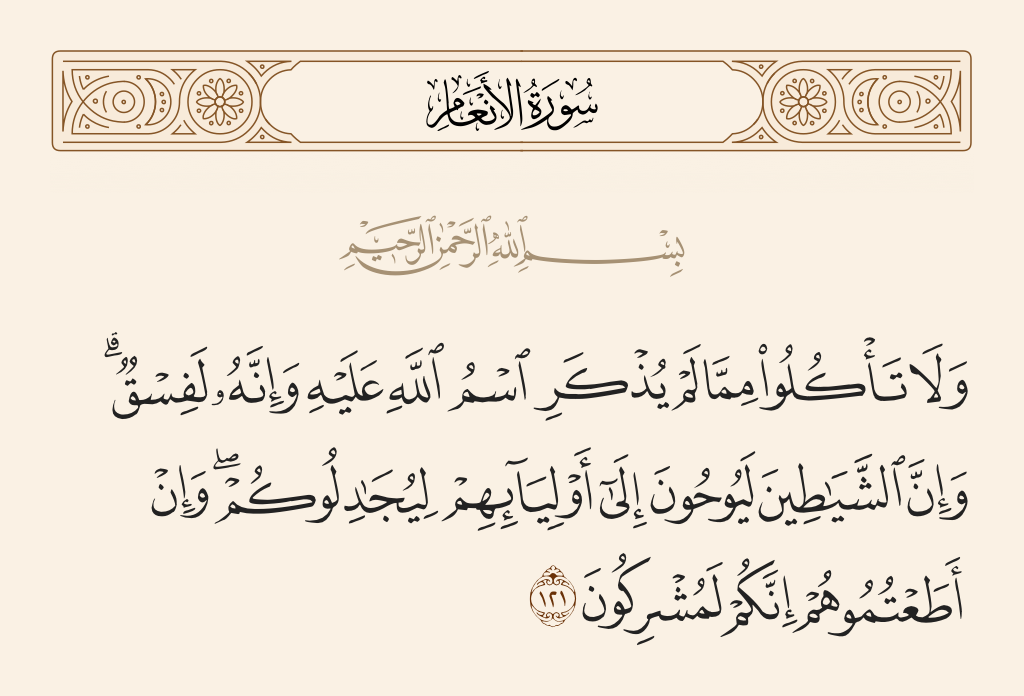 سُورَةُ الأَنْعَامِ
بِسْمِ ٱللَّهِ ٱلرَّحْمَٰنِ ٱلرَّحِيمِ
وَلَا تَأْكُلُوا۟ مِمَّا لَمْ يُذْكَرِ ٱسْمُ ٱللَّهِ عَلَيْهِ وَإِنَّهُۥ لَفِسْقٌ ۗ
وَإِنَّ ٱلشَّيَٰطِينَ لَيُوحُونَ إِلَىٰٓ أَوْلِيَآئِهِمْ لِيُجَٰدِلُوكُمْ ۖ وَإِنْ
أَطَعْتُمُوهُمْ إِنَّكُمْ لَمُشْرِكُونَ ١٢١